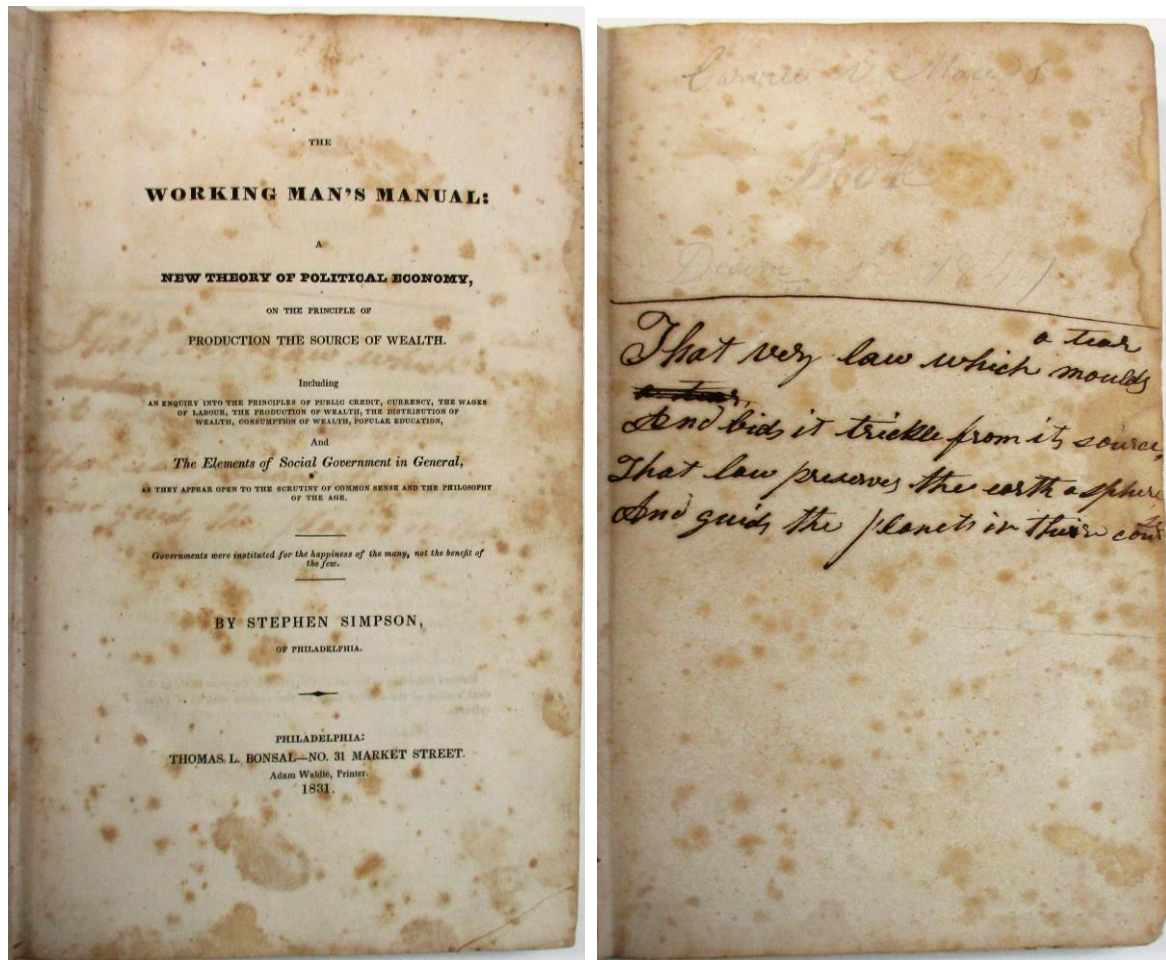 THE
WORKING MAN'S MANUAL:
A
NEW THEORY OF POLITICAL ECONOMY,
ON THE PRINCIPLE OF
PRODUCTION THE SOURCE OF WEALTH.
Including
AN ENQUIRY INTO THE PRINCIPLES OF PUBLIC CREDIT, CURRENCY, THE WAGES
OF LABOUR, THE PRODUCTION OF WEALTH, THE DISTRIBUTION OF
WEALTH, CONSUMPTION OF WEALTH, POPULAR EDUCATION,
And
The Elements of Social Government in General,
AS THEY APPEAR OPEN TO THE SCRUTINY OF COMMON SENSE AND THE PHILOSOPHY
OF THE AGE.
Governments were instituted for the happiness of the many, not the benefit of
the few.
BY STEPHEN SIMPSON,
OF PHILADELPHIA.
PHILADELPHIA:
THOMAS L. BONSAL—NO. 31 MARKET STREET.
Adam Waldie, Printer.
1831.
Book
a tear
That very law which moulds
And bids it trickle from its source,
That law preserves the earth a sphere
And guids the planets in their